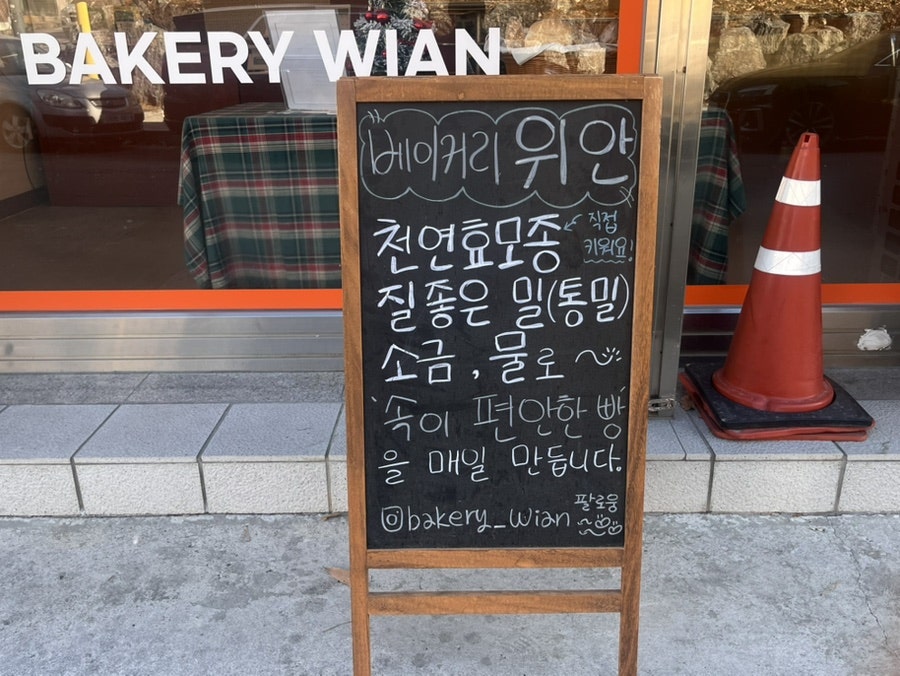 BAKERY WIAN
베이커리 위안
천연효모종 직접
키워요!
질좋은 밀(통밀)
소금, 물로 ~
'속이 편안한 빵'
을 매일 만듭니다.
팔로웅
bakery_wian